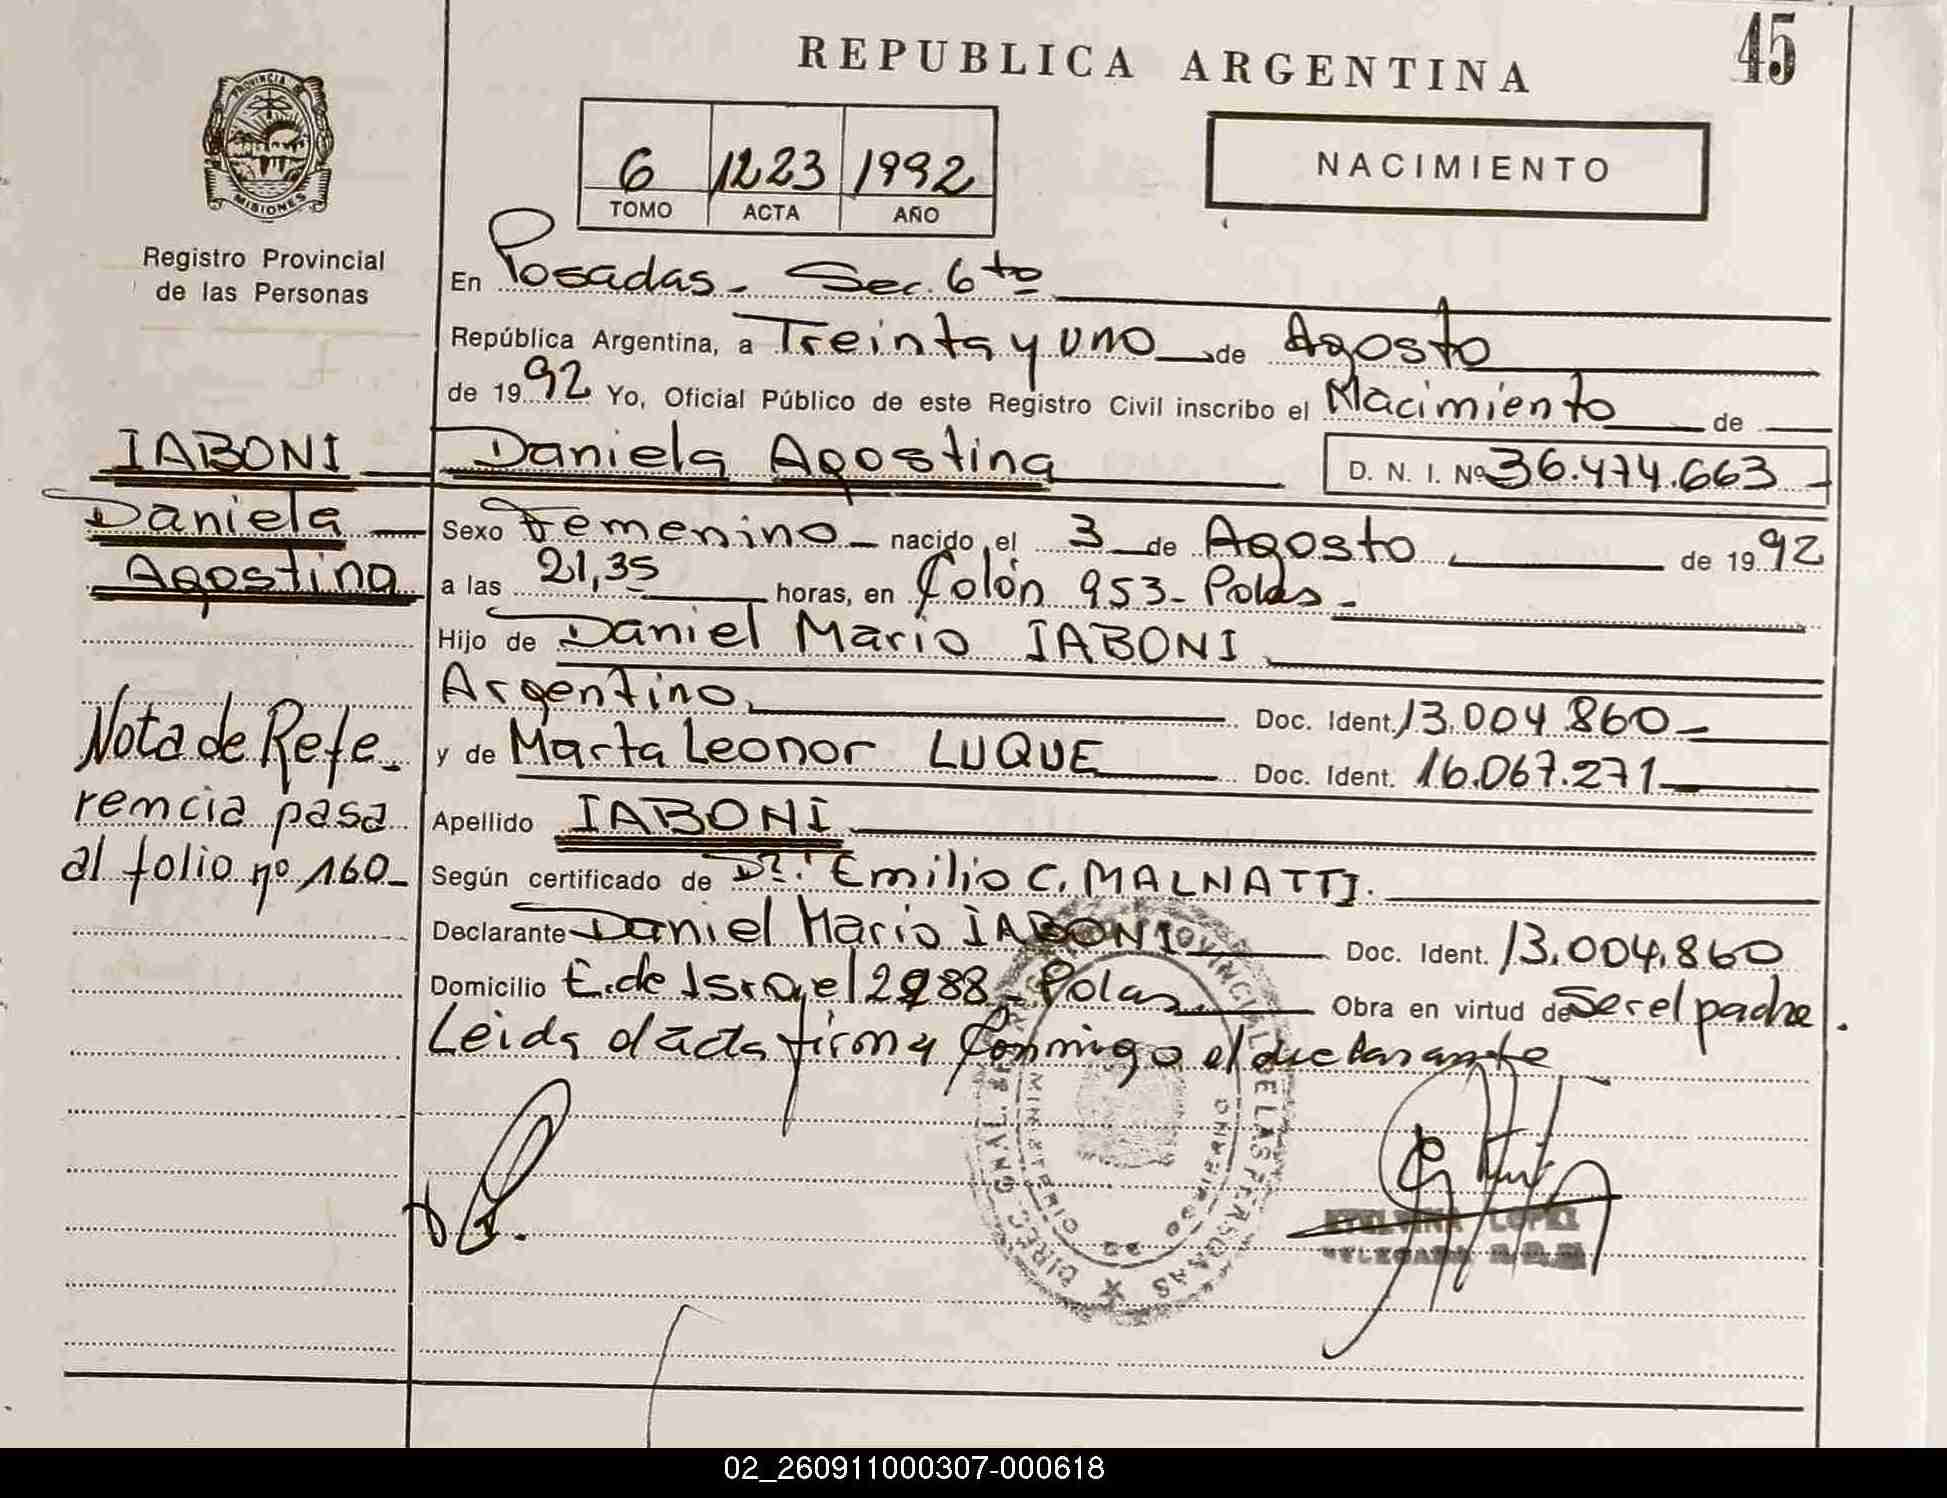 REPUBLICA ARGENTINA
45
PROVINCIA DE
MISIONES
6 1223 1992
TOMO ACTA AÑO
NACIMIENTO
Registro Provincial
de las Personas
En Posadas - Sec. 6to
República Argentina, a Treinta y uno de Agosto
de 1992 Yo, Oficial Público de este Registro Civil inscribo el Nacimiento de
IABONI Daniela Agostina D. N. I. Nº 36.474.663
Daniela Sexo Femenino nacido el 3 de Agosto de 1992
Agostina a las 21,35 horas, en Colón 953 - Pdas -
Hijo de Daniel Mario IABONI
Argentino, Doc. Ident. 13.004.860
Nota de Refe-
y de Marta Leonor LUQUE Doc. Ident. 16.067.271
rencia pasa
Apellido IABONI
al folio nº 160-
Según certificado de Dr. Emilio C. MALNATTI.
Declarante Daniel Mario IABONI Doc. Ident. 13.004.860
Domicilio E. de Israel 2988 - Pdas. Obra en virtud de Ser el padre.
Leida el acta firma conmigo el declarante
DIREC GRAL PROVINCIAL DE LAS PERSONAS
MINISTERIO DE GOBIERNO
ETELVINA LOPEZ
DELEGADA
02_260911000307-000618